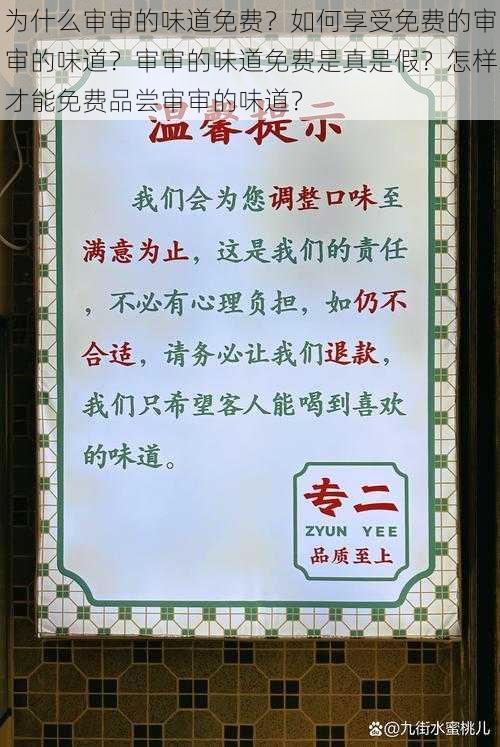 为什么审审的味道免费？如何享受免费的审
审的味道？审审的味道免费是真是假？怎样
才能免费品尝审审的味道？
温馨提示
我们会为您调整口味至
满意为止，这是我们的责任
，不必有心理负担，如仍不
合适，请务必让我们退款，
我们只希望客人能喝到喜欢
的味道。
专二
ZYUN YEE
品质至上
@九街水蜜桃儿